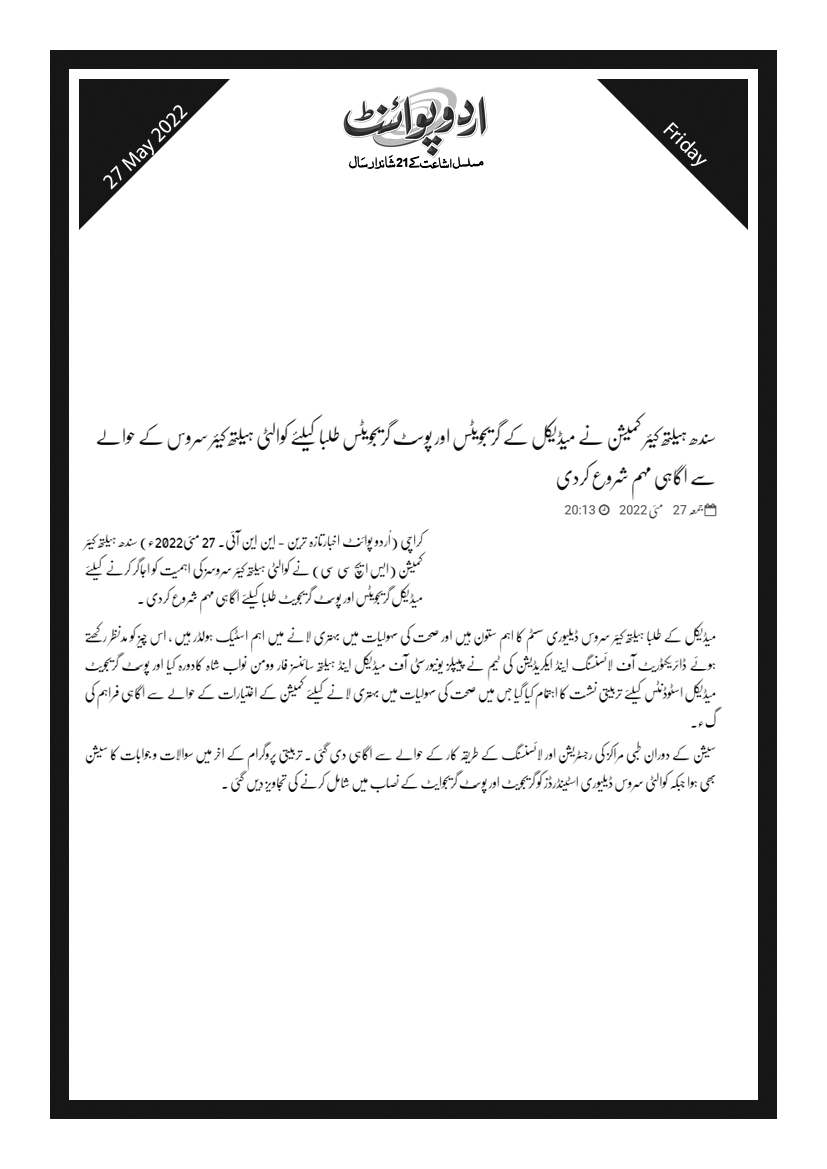 27 May 2022
اردو پوائنٹ
Friday
مسلسل اشاعت کے 21 شاندار سال
سندھ ہیلتھ کیئر کمیشن نے میڈیکل کے گریجویٹس اور پوسٹ گریجویٹس طلبا کیلئے کوالٹی ہیلتھ کیئر سروس کے حوالے
سے اگاہی مہم شروع کردی
جمعہ 27 مئی 2022 20:13
کراچی (اُردو پوائنٹ اخبارتازہ ترین - این این آئی۔ 27 مئی2022ء) سندھ ہیلتھ کیئر
کمیشن (ایس ایچ سی سی) نے کوالٹی ہیلتھ کیئر سروسز کی اہمیت کو اجاگر کرنے کیلئے
میڈیکل گریجویٹس اور پوسٹ گریجویٹ طلبا کیلئے اگاہی مہم شروع کردی ۔
میڈیکل کے طلبا ہیلتھ کیئر سروس ڈیلیوری سسٹم کا اہم ستون ہیں اور صحت کی سہولیات میں بہتری لانے میں اہم اسٹیک ہولڈر ہیں ، اس چیز کو مدنظر رکھتے
ہوئے ڈائریکٹوریٹ آف لائسننگ اینڈ ایکریڈیشن کی ٹیم نے پیپلز یونیورسٹی آف میڈیکل اینڈ ہیلتھ سائنسز فار وومن نواب شاہ کادورہ کیا اور پوسٹ گریجویٹ
میڈیکل اسٹوڈنٹس کیلئے تربیتی نشت کا اہتمام کیا گیا جس میں صحت کی سہولیات میں بہتری لانے کیلئے کمیشن کے اختیارات کے حوالے سے اگاہی فراہم کی
گ ء۔
سیشن کے دوران طبی مراکز کی رجسٹریشن اور لائسننگ کے طریقہ کار کے حوالے سے اگاہی دی گئی ۔ تربیتی پروگرام کے اخر میں سوالات و جوابات کا سیشن
بھی ہوا جبکہ کوالٹی سروس ڈیلیوری اسٹینڈرڈز کو گریجویٹ اور پوسٹ گریجوایٹ کے نصاب میں شامل کرنے کی تجاویز دیں گئی ۔